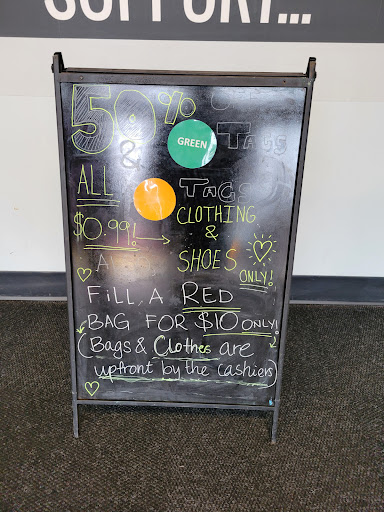 SUPPORT...
50% OFF
GREEN TAGS
&
ALL TAGS
$0.99! CLOTHING
&
SHOES
ONLY!
FILL A RED
BAG FOR $10 ONLY!
(Bags & Clothes are
upfront by the cashiers)